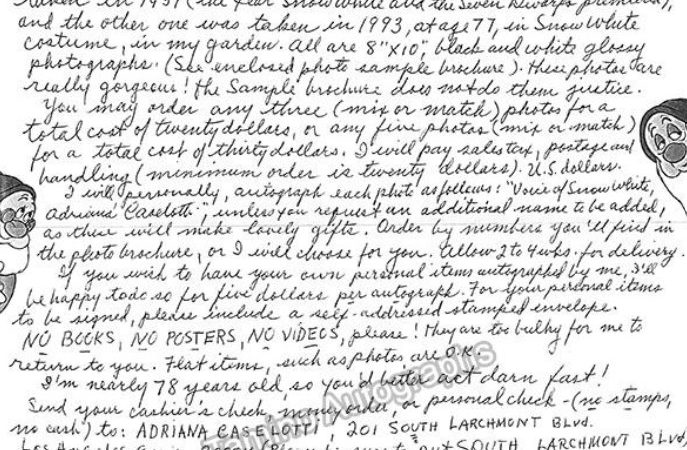 taken in 1937 (the year Snow White and the Seven Dwarfs premiered),
and the other one was taken in 1993, at age 77, in Snow White
costume, in my garden. All are 8"x10", black and white glossy
photographs. (See enclosed photo sample brochure). These photos are
really gorgeous! The Sample brochure does not do them justice.
You may order any three (mix or match) photos for a
total cost of twenty dollars, or any five photos (mix or match)
for a total cost of thirty dollars. I will pay sales tax, postage and
handling (minimum order is twenty dollars). U.S. dollars.
I will, personally, autograph each photo as follows: "Voice of Snow White,
Adriana Caselotti", unless you request an additional name to be added,
as these will make lovely gifts. Order by numbers you'll find in
the photo brochure, or I will choose for you. Allow 2 to 4 wks. for delivery.
If you wish to have your own personal items autographed by me, I'll
be happy to do so for five dollars per autograph. For your personal items
to be signed, please include a self-addressed stamped envelope.
NO BOOKS, NO POSTERS, NO VIDEOS, please! They are too bulky for me to
return to you. Flat items, such as photos are O.K.
I'm nearly 78 years old, so you'd better act darn fast!
Send your cashier's check, money order, or personal check - (no stamps,
no cash) to: ADRIANA CASELOTTI, 201 SOUTH LARCHMONT Blvd.
Los Angeles SOUTH LARCHMONT Blvd,
Tamino Autographs